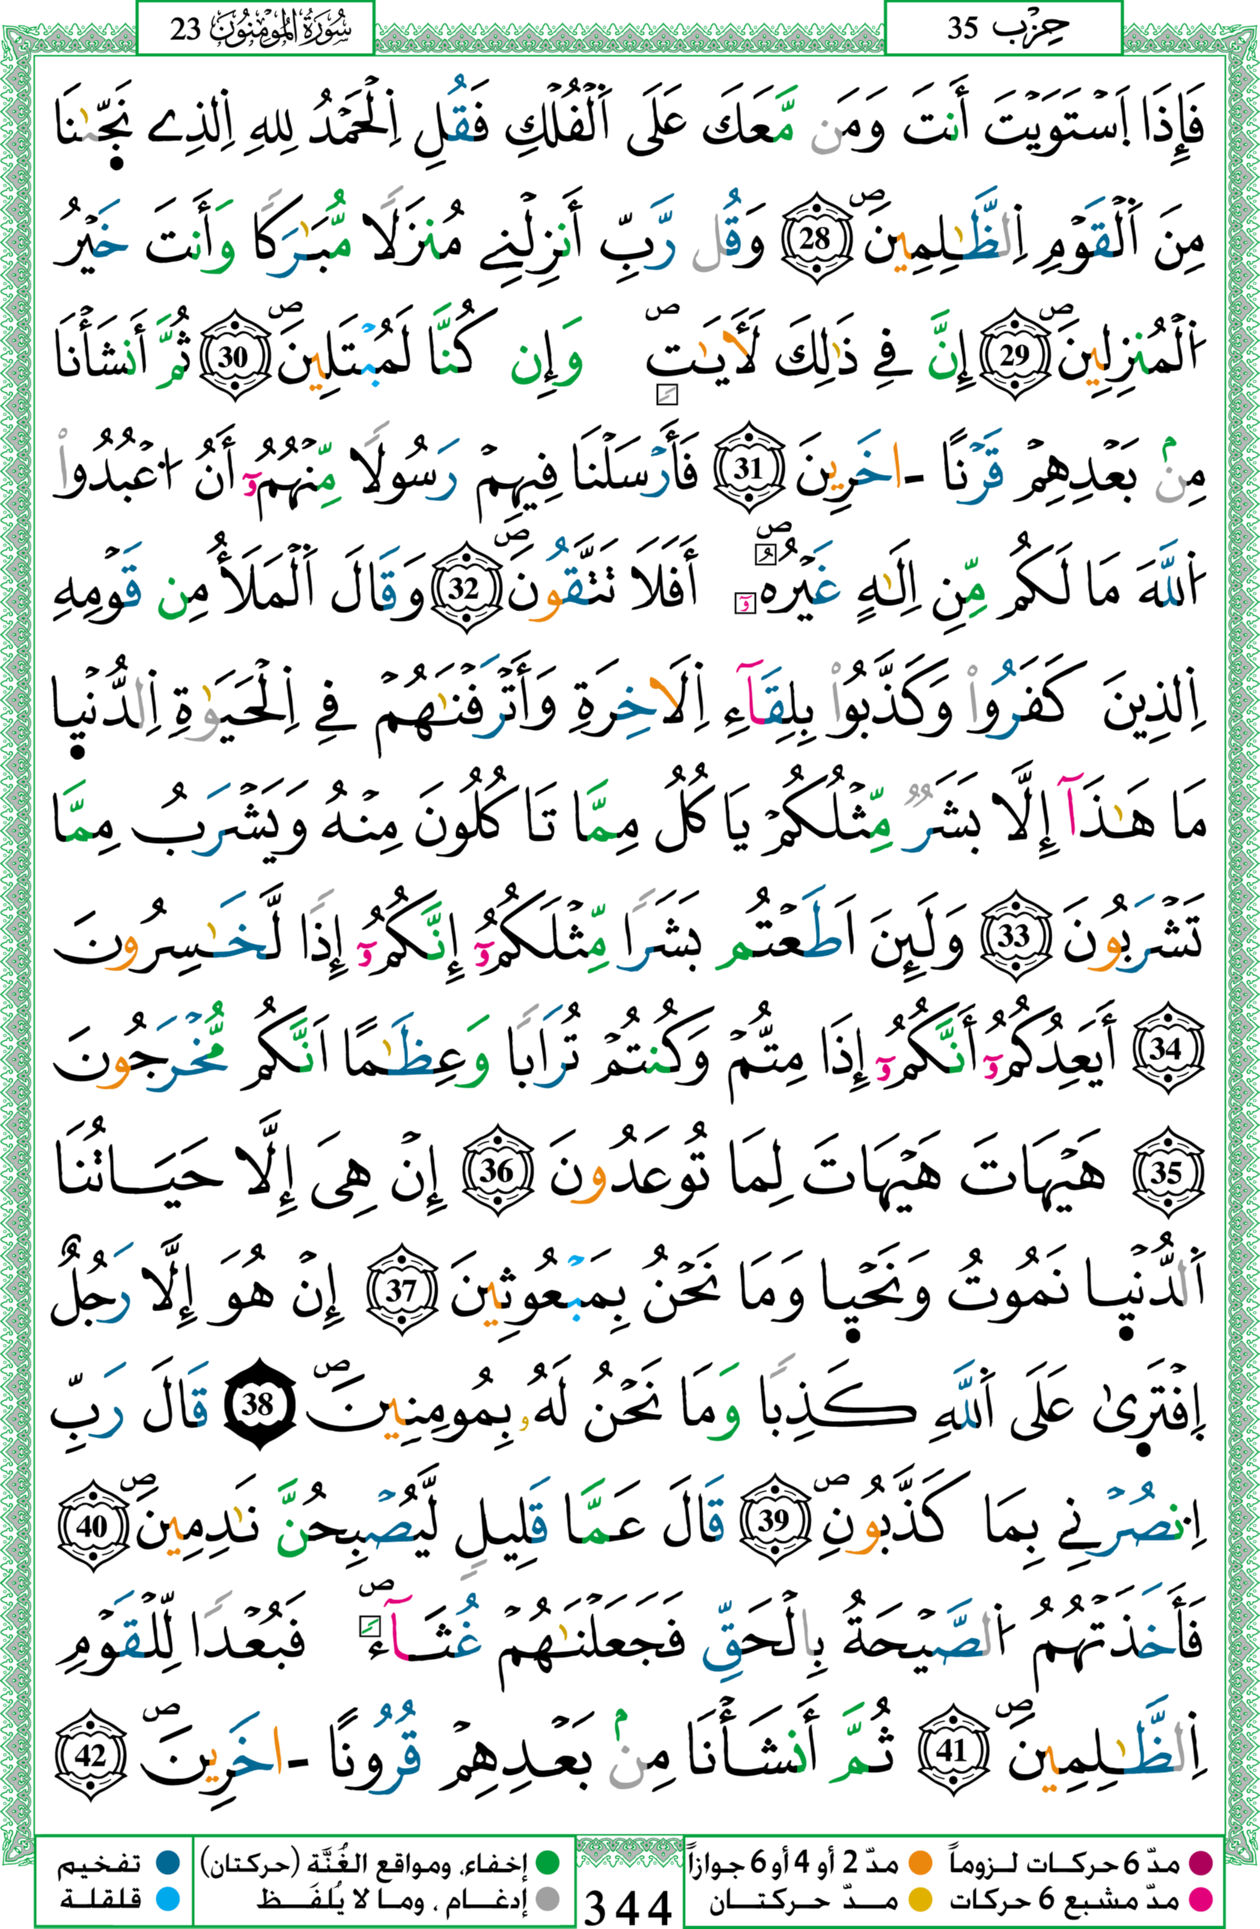 سُورَةُ المُومِنُونَ 23
حِزْب 35
فَإِذَا اَسْتَوَيْتَ أَنتَ وَمَن مَّعَكَ عَلَى اَلْفُلْكِ فَقُلِ اِلْحَمْدُ لِلهِ اِلذِے نَجّ۪ىٰنَا
مِنَ اَلْقَوْمِ اِلظَّٰلِمِينَۖ 28 وَقُل رَّبِّ أَنزِلْنِے مُنزَلاً مُّبَٰرَكاً وَأَنتَ خَيْرُ
اُلْمُنزِلِينَۖ 29 إِنَّ فِے ذَٰلِكَ لَأَيَٰتٖۖ وَإِن كُنَّا لَمُبْتَلِينَۖ 30 ثُمَّ أَنشَأْنَا
مِنۢ بَعْدِهِمْ قَرْناً -اخَرِينَ 31 فَأَرْسَلْنَا فِيهِمْ رَسُولاً مِّنْهُمُۥٓ أَنُ اُعْبُدُواْ
اُللَّهَ مَا لَكُم مِّنِ اِلَٰهٍ غَيْرُهُۥٓۖ أَفَلَا تَتَّقُونَۖ 32 وَقَالَ اَلْمَلَأُ مِن قَوْمِهِ
اِلذِينَ كَفَرُواْ وَكَذَّبُواْ بِلِقَآءِ اِلَاخِرَةِ وَأَتْرَفْنَٰهُمْ فِے اِلْحَيَوٰةِ اِلدُّنْي۪ا
مَا هَٰذَآ إِلَّا بَشَرٌ مِّثْلُكُمْ يَاكُلُ مِمَّا تَاكُلُونَ مِنْهُ وَيَشْرَبُ مِمَّا
تَشْرَبُونَ 33 وَلَئِنَ اَطَعْتُم بَشَراً مِّثْلَكُمُۥٓ إِنَّكُمُۥٓ إِذاً لَّخَٰسِرُونَ
34 أَيَعِدُكُمُۥٓ أَنَّكُمُۥٓ إِذَا مِتُّمْ وَكُنتُمْ تُرَاباً وَعِظَٰماً اَنَّكُم مُّخْرَجُونَ
35 هَيْهَاتَ هَيْهَاتَ لِمَا تُوعَدُونَ 36 إِنْ هِىَ إِلَّا حَيَاتُنَا
اَلدُّنْي۪ا نَمُوتُ وَنَحْي۪ا وَمَا نَحْنُ بِمَبْعُوثِينَ 37 إِنْ هُوَ إِلَّا رَجُلٌ
اِفْتَر۪ىٰ عَلَى اَللَّهِ كَذِباً وَمَا نَحْنُ لَهُۥ بِمُومِنِينَۖ 38 قَالَ رَبِّ
اِنصُرْنِے بِمَا كَذَّبُونِۖ 39 قَالَ عَمَّا قَلِيلٍ لَّيُصْبِحُنَّ نَٰدِمِينَۖ 40
فَأَخَذَتْهُمُ اُلصَّيْحَةُ بِالْحَقِّ فَجَعَلْنَٰهُمْ غُثَآءًۖ فَبُعْداً لِّلْقَوْمِ
اِلظَّٰلِمِينَۖ 41 ثُمَّ أَنشَأْنَا مِنۢ بَعْدِهِمْ قُرُوناً -اخَرِينَۖ 42
مدّ 6 حركات لـزوماً مدّ 2 أو 4 أو 6 جوازاً
مدّ مشبع 6 حركات مــدّ حـركتــان
344
إخفاء، ومواقع الغُنَّة (حركتان) تفخيم
إدغام ، وما لا يُلفَـظ قلقلة